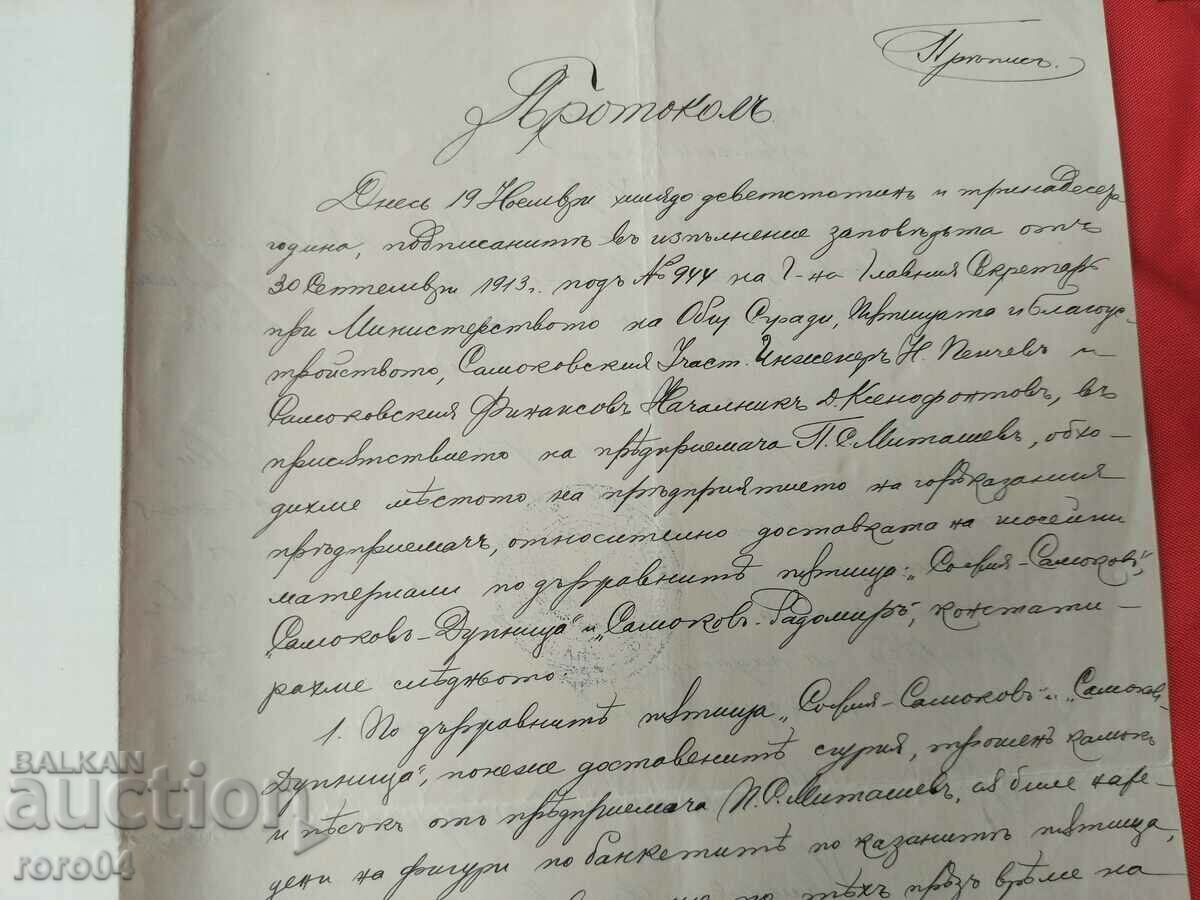 Прѣписъ.
Протоколъ
Днесь 19 Ноемврӣ хилядо деветстотинъ и тринадесета
година, подписанитѣ въ изпълнение заповѣдьта отъ
30 Септемврӣ 1913 г. подъ № 944 на Г-на Главния Секретарь
при Министерството на Общ Сгради, Пѫтищата и Благоус-
тройството, Самоковския Участ. Инженеръ Н. Пенчевъ и
Самоковския Финансовъ Началникъ Д. Ксенофонтовъ, въ
присѫтствието на прѣдприемача П. С. Миташевъ, обхо-
дихме мѣстото на прѣдприятието на горѣказания
прѣдприемачъ, относително доставката на шосейни
материали по държавнитѣ пѫтища: „София-Самоковъ“,
„Самоковъ-Дупница“ и „Самоковъ-Радомиръ“, констати-
рахме слѣдньото:
1. По държавнитѣ пѫтища „София-Самоковъ“ и „Самоковъ-
Дупница“, понеже доставенитѣ сгурия, трошенъ камъкъ
и пѣсъкъ отъ прѣдприемача П. С. Миташевъ, сѫ биле наре-
дени на фигури по банкетитѣ по казанитѣ пѫтища,
по тѣхъ прѣзъ врѣме на
BALKAN
auction
roro04